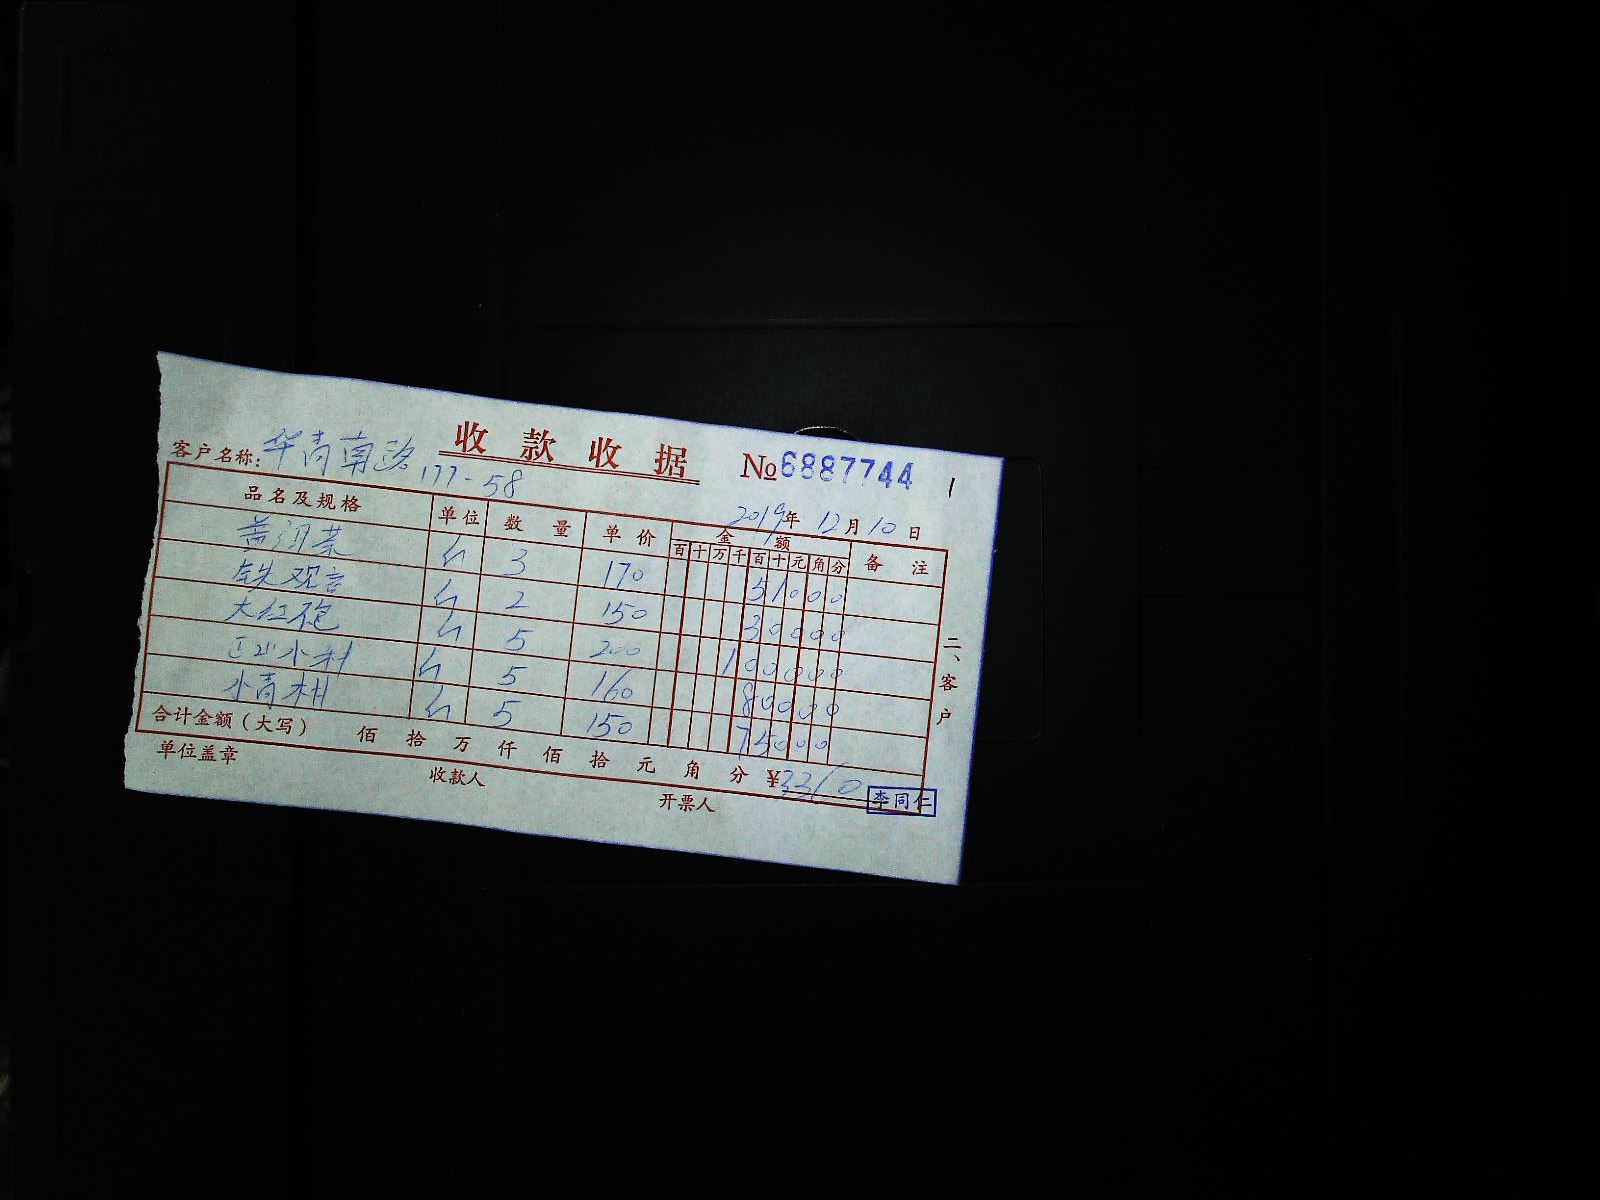 收款收据 №6887744 1
客户名称:华青南路177-58
2019年12月10日
品名及规格 单位 数量 单价 金额 备注
百十万千百十元角分
3 170 51000
铁观音 2 150 30000
大红袍 5 200 100000
正山小种 5 160 80000
小青柑 5 150 75000
合计金额(大写) 佰 拾 万 仟 佰 拾 元 角 分 ¥3360
单位盖章 收款人 开票人 李同仁
二、客户